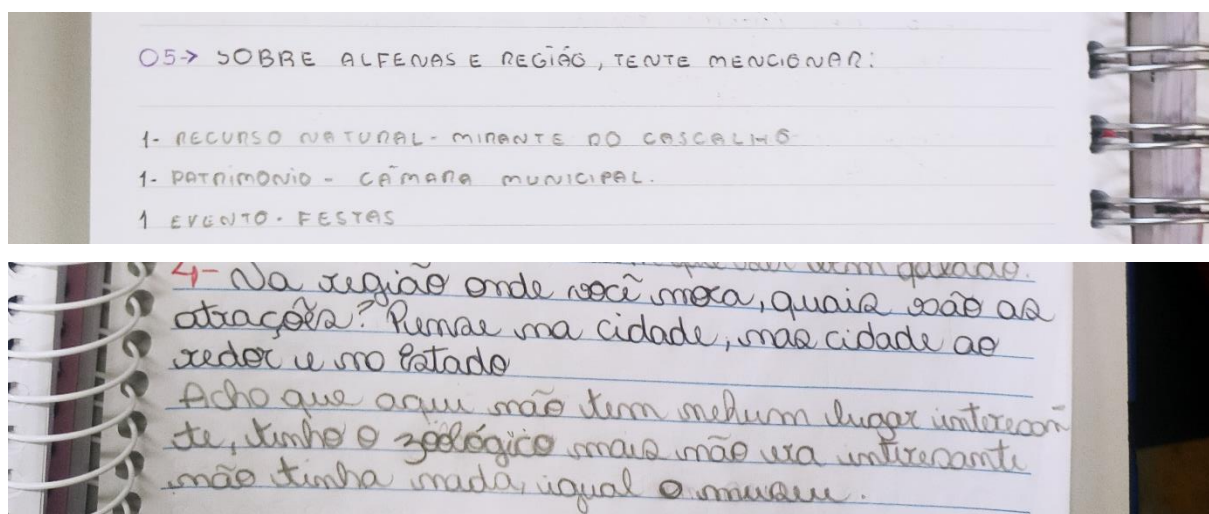 05→ SOBRE ALFENAS E REGIÃO, TENTE MENCIONAR:
1- RECURSO NATURAL - MIRANTE DO CASCALHO
1- PATRIMONIO - CÂMARA MUNICIPAL.
1 EVENTO - FESTAS
4- Na região onde você mora, quais são as
atrações? Pense na cidade, nas cidade ao
redor e no Estado
Acho que aqui não tem nehum lugar interecon
te, tinho o zoológico mais não era interesante
não tinha nada, igual o museu.